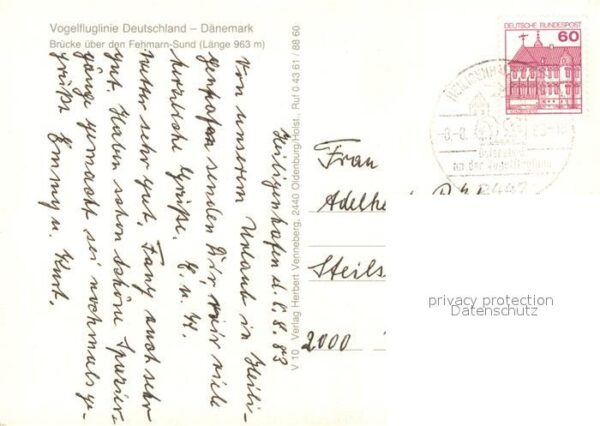 Vogelfluglinie Deutschland – Dänemark
Brücke über den Fehmarn-Sund (Länge 963 m)
Heiligenhafen d. 6.8.83
Von unserem Urlaub in Heili-
genhafen senden Dir, wir viele
herzliche Grüße. E. u. H.
Mutter sehr gut. Fany auch sehr
gut. Haben schon schöne Spazier-
gänge gemacht sei nochmals ge-
grüßt Emmy u. Kurt.
V 10 Verlag Herbert Venneberg, 2440 Oldenburg/Holst., Ruf 0 43 61 / 88 60
DEUTSCHE BUNDESPOST
60
an der Vogelfluglinie
Frau
Adelhe
Steils
2000
privacy protection
Datenschutz